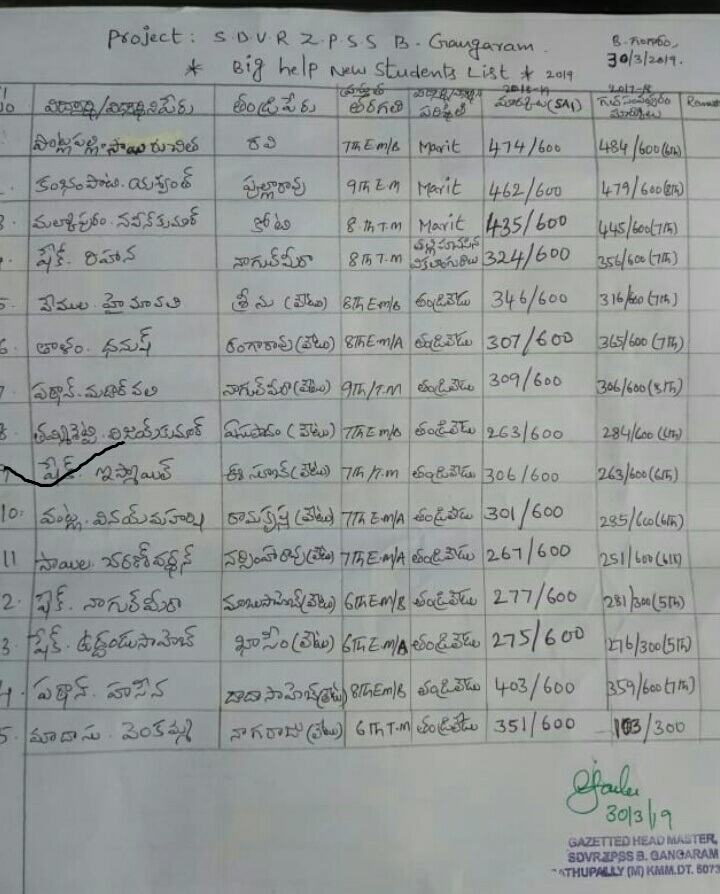 Project: S.D.V.R Z.P.S.S B. Gangaram.
B. గంగారం,
30/3/2019.
* Big help New Students List * 2019
విద్యార్థి/విద్యార్థిని పేరు తండ్రి పేరు ప్రస్తుత తరగతి పరిస్థితి 2018-19 మార్కులు (SA1) 2017-18 గత సంవత్సరం మార్కులు
సాయి రుచిత రవి 7Th E.m/B Marit 474/600 484/600(6th)
కంభంపాటి. యశ్వంత్ పుల్లారావు 9Th E.m Marit 462/600 479/600(8th)
3. నవీన్ కుమార్ కోటి 8.th T.m Marit 435/600 445/600(7Th)
షేక్. రిహాన నాగుల్ మీరా 8Th T.m 324/600 356/600(7Th)
5. వేముల. హైమావతి శ్రీను (లేటు) 8Th E.m/B తండ్రిలేడు 346/600 316/600(7th)
6. తాళం. ధనుష్ రంగారావు (లేటు) 8Th E.m/A తండ్రిలేడు 307/600 365/600(7Th)
7. పఠాన్. మదార్ వలి నాగుల్ మీరా (లేటు) 9Th/T.m తండ్రిలేడు 309/600 306/600(8Th)
8. తమ్మిశెట్టి. విజయ్ కుమార్ ఏసుపాదం (లేటు) 7Th E.m/B తండ్రిలేడు 263/600 284/600(6th)
షేక్. ఇస్మాయిల్ (లేటు) 7Th/T.m తండ్రిలేడు 306/600 263/600(6Th)
10. వినయ్ మహర్షి రామకృష్ణ (లేటు) 7Th E.m/A తండ్రిలేడు 301/600 285/600(6Th)
11 నర్సింహారావు (లేటు) 7Th E.m/A తండ్రిలేడు 267/600 251/600(6Th)
2. షేక్. నాగుల్ మీరా మాబుసాహెబ్ (లేటు) 6Th E.m/B తండ్రిలేడు 277/600 281/300(5Th)
3. షేక్. ఉద్దండుసాహెబ్ ఖాసీం (లేటు) 6Th E.m/A తండ్రిలేడు 275/600 276/300(5Th)
4. పఠాన్. హసీన దాదాసాహెబ్ (లేటు) 8Th E.m/B తండ్రిలేడు 403/600 359/600(7Th)
5. మాదాసు. వెంకమ్మ నాగరాజు (లేటు) 6Th T.m తండ్రిలేడు 351/600 103/300
30/3/19
GAZETTED HEAD MASTER,
SDVRZPSS B. GANGARAM
ATHUPALLY (M) KMM.DT. 5073